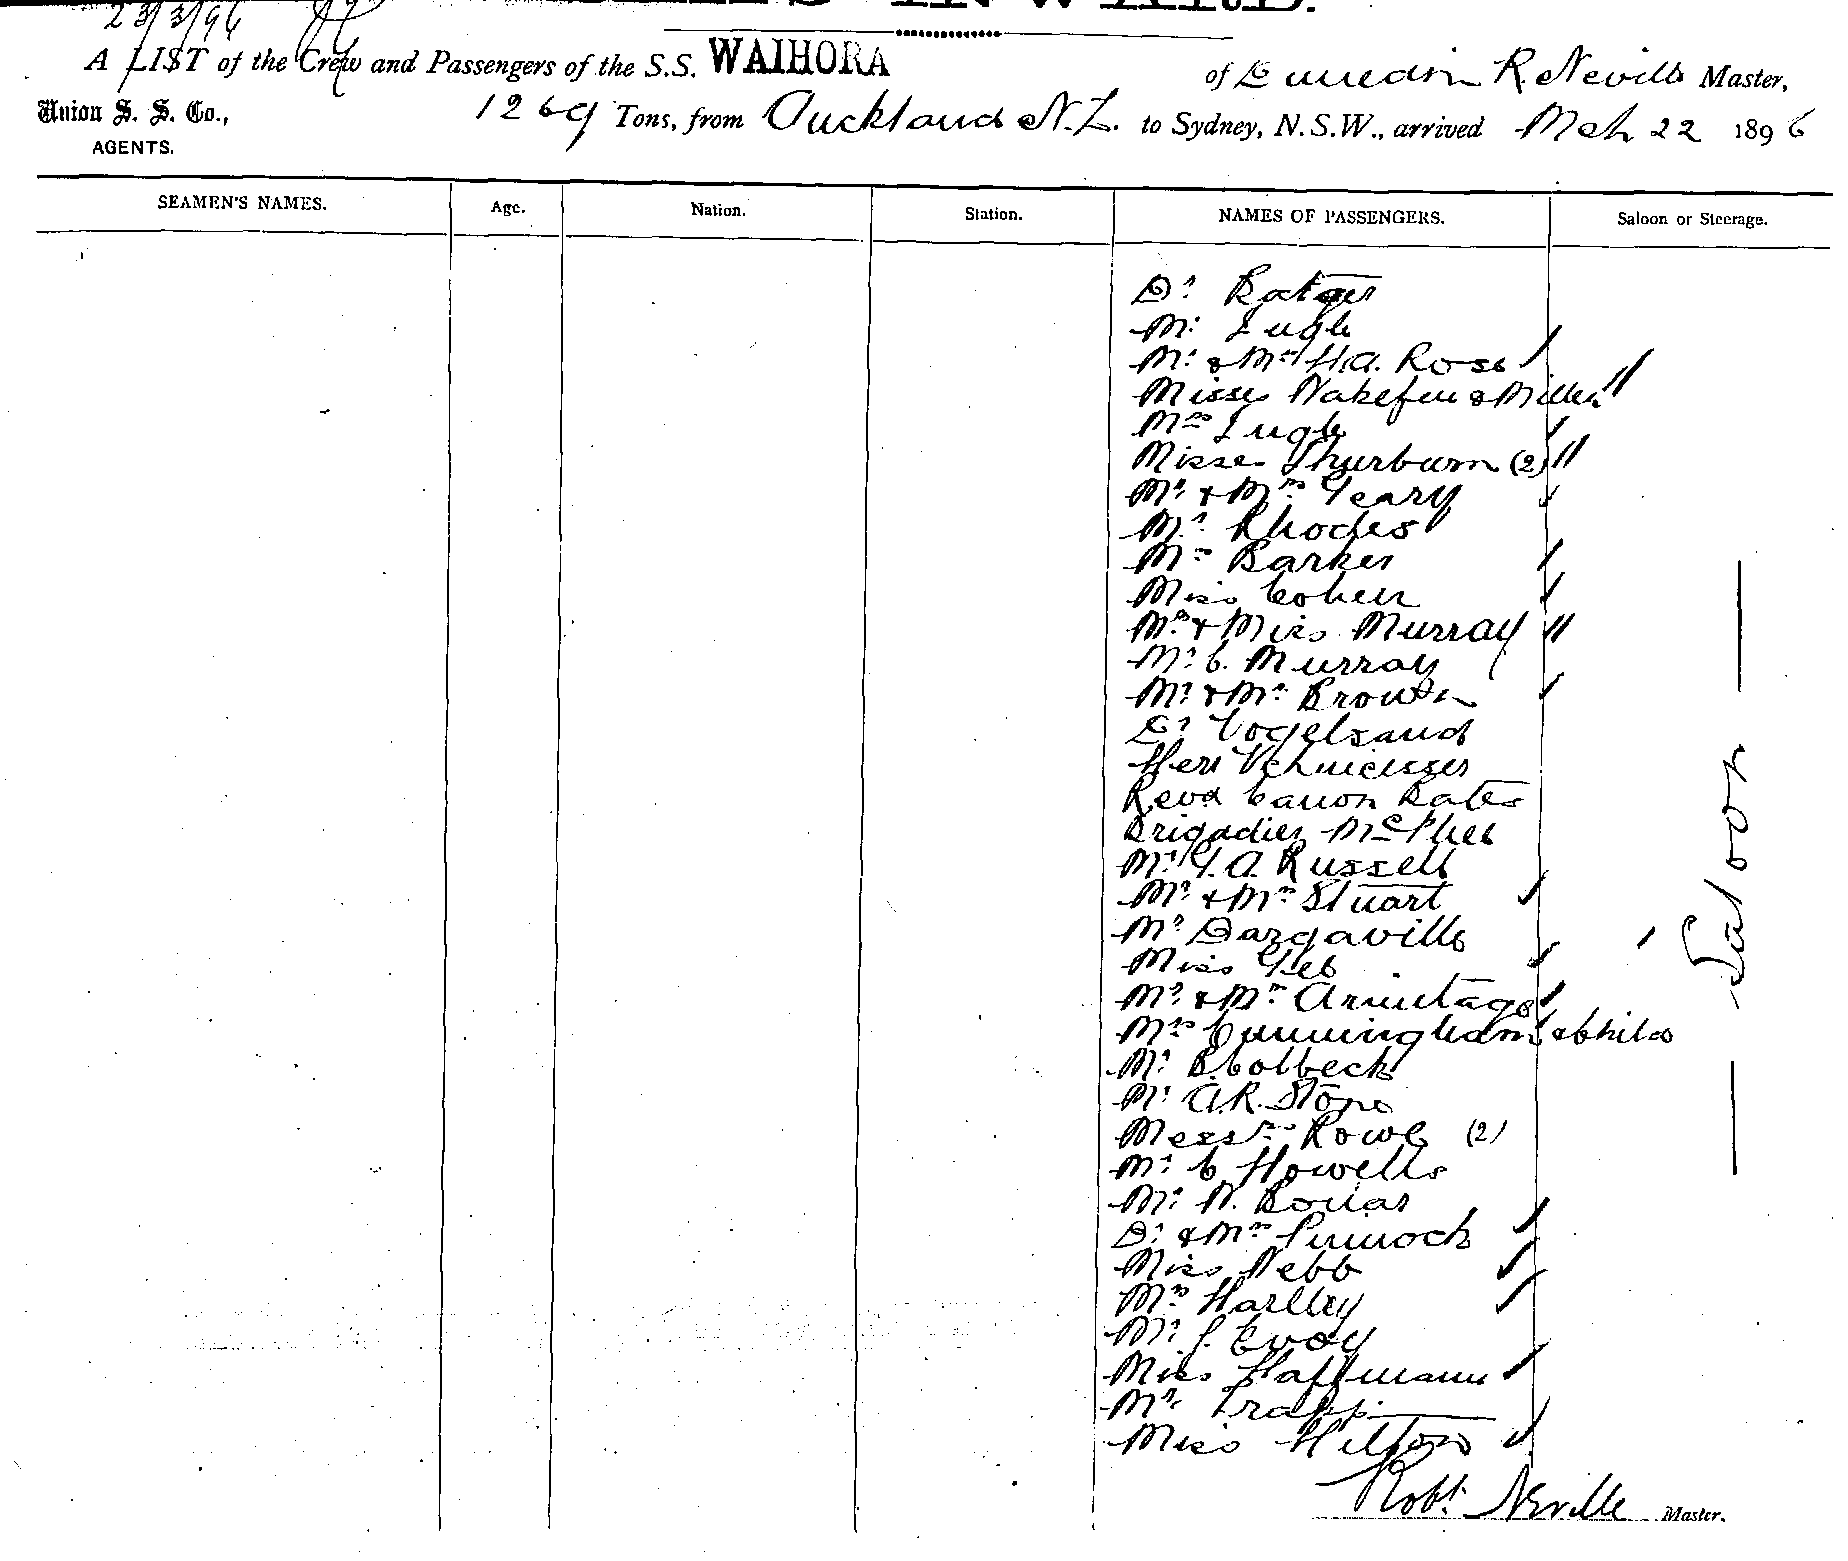 23/3/96
A LIST of the Crew and Passengers of the S.S. WAIHORA of Dunedin R. Neville Master,
Union S. S. Co., AGENTS. 1269 Tons, from Auckland N.Z. to Sydney, N.S.W., arrived Mch 22 1896
SEAMEN'S NAMES. Age. Nation. Station. NAMES OF PASSENGERS. Saloon or Steerage.
Dr
Mr Lugh
Mr & Mrs H.A. Ross
Misses & Miller
Mrs Lugh
Misses Thurburn (2)
Mr & Mrs Geary
Mr Rhodes
Mrs Barker
Miss Cohen
Mrs & Miss Murray
Mr C. Murray
Mr & Mrs Brown
Dr Vogelsand
Herr
Revd Canon Bates
Brigadier McPhee
Mr G.A. Russell
Mr & Mrs Stuart
Mr Dargaville
Miss
Mr & Mrs Armitage
Mrs Cunningham & child
Mr Colbeck
Mr A.R. Stone
Messrs Rowe (2)
Mr C Howells
Mr W.
Dr & Mrs Pinnock
Miss Webb
Mrs Hartley
Mr J. Evoy
Miss Haffmann
Mr Trapp
Miss Hilton
Saloon
Robt. Neville Master.